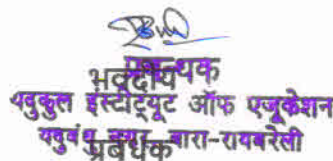 प्रबन्धक
भवदीय
यदुकुल इंस्टीट्यूट ऑफ एजूकेशन
यदुवंश नगर, बारा-रायबरेली
प्रबंधक